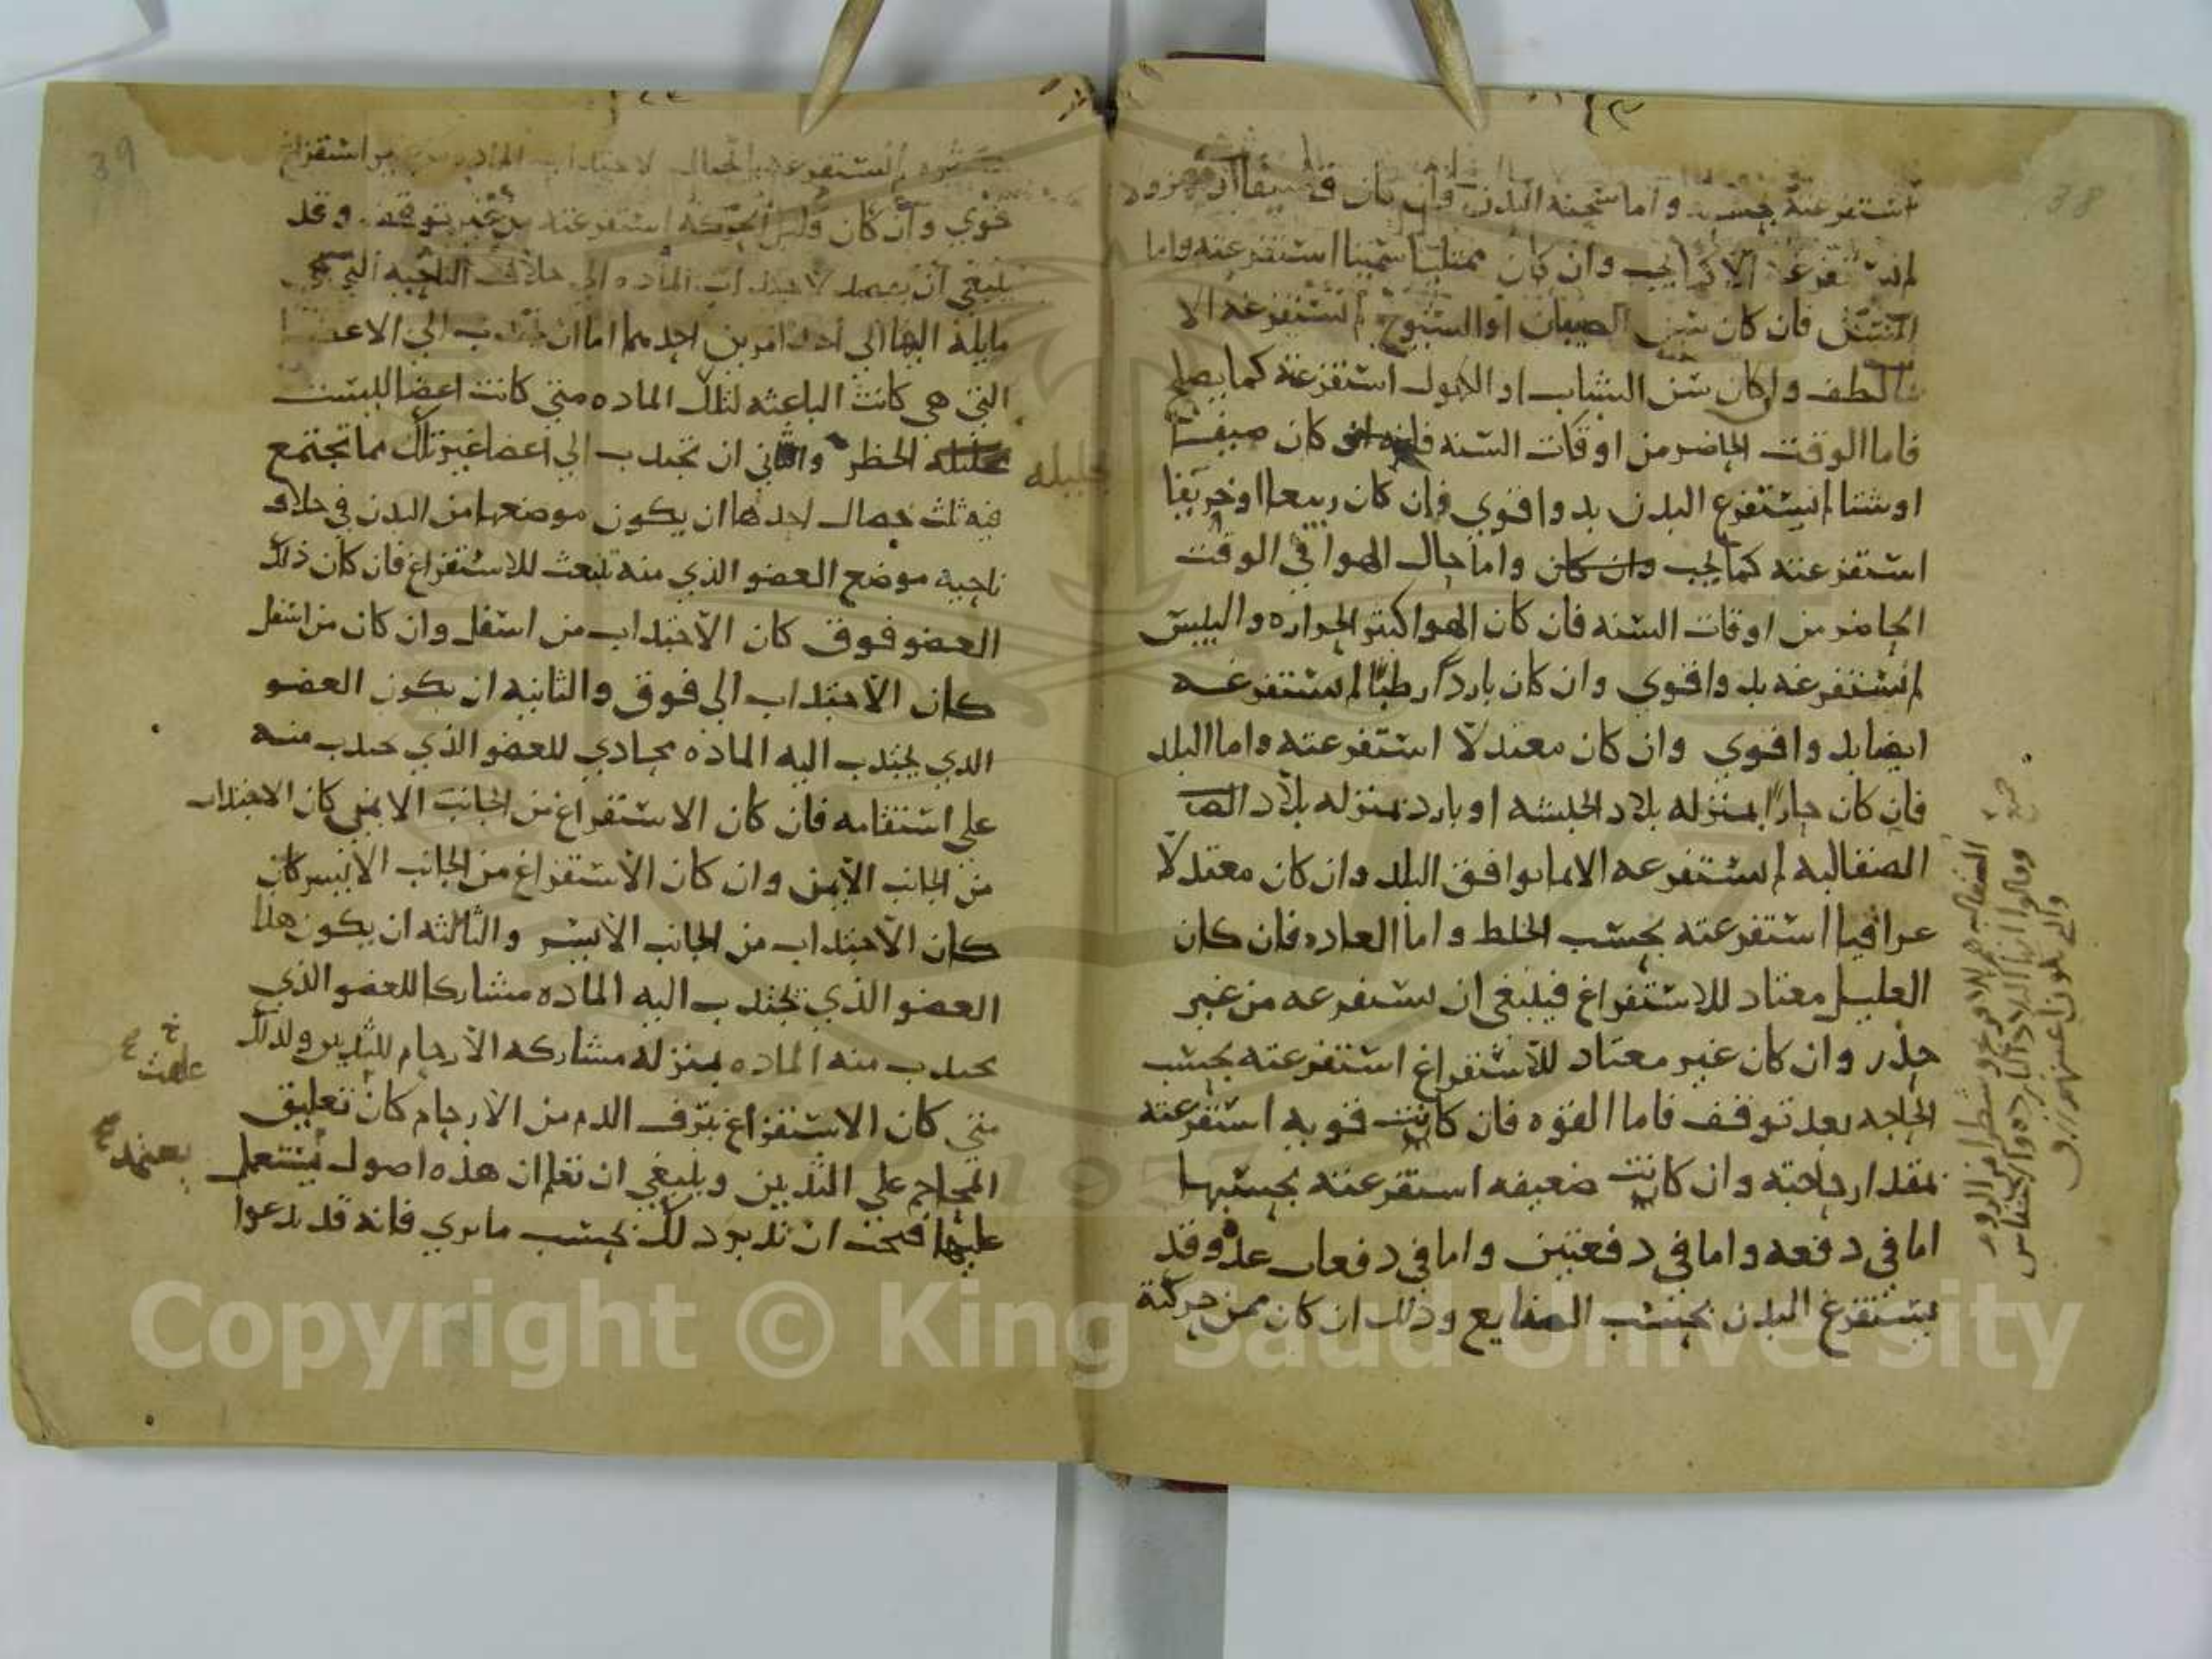 استفرغته بحسبه واما سحنة البدن فان كان قضيفا او مهزولا
لم تستفرغه الا كما يجب وان كان ممتليا سمينا استفرغته واما
السن فان كان سن الصبيان او الشيوخ لم تستفرغه الا
بالطف وان كان سن الشباب او الكهول استفرغته كما يصلح
فاما الوقت الحاضر من اوقات السنه فان كان صيفا
او شتا لم تستفرغ البدن بدوا قوي فان كان ربيعا او خريفا
استفرغته كما يجب وان كان واما حال الهوا في الوقت
الحاضر من اوقات السنه فان كان الهوا كثير الحراره واليبس
لم تستفرغه بدوا قوي وان كان باردا رطبا لم تستفرغه
ايضا بدوا قوي وان كان معتدلا استفرغته واما البلد
فان كان حارا بمنزله بلاد الحبشه او بارد بمنزله بلاد الصا
الصقالبه لم تستفرغه الا ما يوافق البلد وان كان معتدلا
عراقيا استفرغته بحسب الخلط واما العاده فان كان
العليل معتاد للاستفراغ فينبغي ان تستفرغه من غير
حذر وان كان غير معتاد للاستفراغ استفرغته بحسب
الحاجه بعد توقف فاما القوه فان كانت قويه استفرغته
بمقدار حاجته وان كانت ضعيفه استفرغته بحسبها
اما في دفعه واما في دفعتين واما في دفعات عده وقد
يستفرغ البدن بحسب الصنايع وذلك ان كان ممن حركته
الصقالبه هم
وقالوا انها البلاد البارده والاجناس
38
39
لم تستفرغه بالحمال لاجتذاب الماده من استفراغ
قوي وان كان قليل الحركه استفرغته من غير توقف وقد
ينبغي ان تعمد لاجتذاب الماده الى خلاف الناحيه التي هي
مايله اليها الي احد امرين احدهما اما ان تجذب الي الاعضا
التي هي كانت الباعثه لتلك الماده متي كانت اعضا ليست
جليله الخطر والثاني ان تجذب الي اعضا غير تلك مما تجتمع
جليله
فيه ثلث خصال احدها ان يكون موضعها من البدن في خلاف
ناحيه موضع العضو الذي منه تنبعث للاستفراغ فان كان ذلك
العضو فوق كان الاجتذاب من اسفل وان كان من اسفل
كان الاجتذاب الى فوق والثانيه ان يكون العضو
الذي يجتذب اليه الماده محاذي للعضو الذي تجذب منه
على استقامه فان كان الاستفراغ من الجانب الايمن كان الاجتذاب
من الجانب الايمن وان كان الاستفراغ من الجانب الايسر كان
كان الاجتذاب من الجانب الايسر والثالثه ان يكون هذا
العضو الذي تجتذب اليه الماده مشاركا للعضو الذي
تجذب منه الماده بمنزله مشاركه الارحام للثديين ولذلك
متي كان الاستفراغ بنزف الدم من الارحام كان تعليق
المحاجم علي الثديين وينبغي ان تعلم ان هذه اصول يستعمل
يعتمد
عليها فيجب ان تدبر ذلك بحسب ما تري فانه قد يدعوا
Copyright © King Saud University
1957